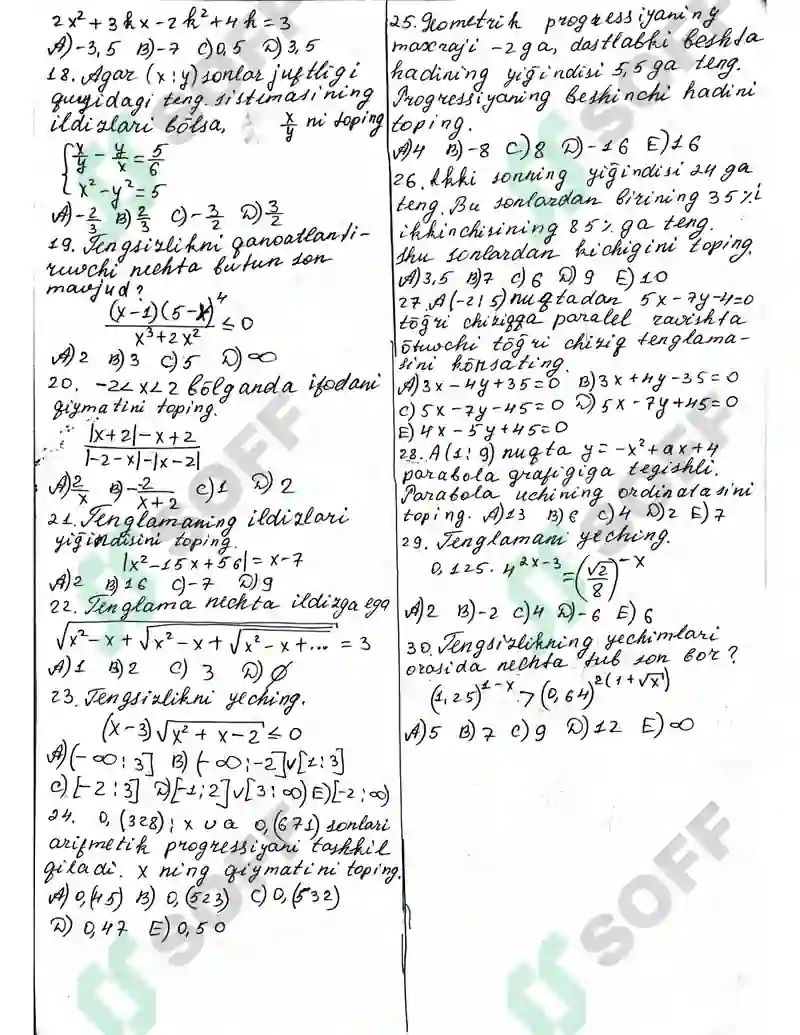 2x² + 3kx - 2k² + 4k = 3
A) -3,5 B) -7 C) 0,5 D) 3,5
18. Agar (x ; y) sonlar juftligi
quyidagi teng. sistemasining
ildizlari bõlsa, x/y ni toping
{ x/y - y/x = 5/6
x² - y² = 5
A) -2/3 B) 2/3 C) -3/2 D) 3/2
19. Tengsizlikni qanoatlanti-
ruvchi nechta butun son
mavjud?
(x-1)(5-x)⁴ / x³+2x² ≤ 0
A) 2 B) 3 C) 5 D) ∞
20. -2<x<2 bõlganda ifodani
qiymatini toping.
|x+2|-x+2 / |-2-x|-|x-2|
A) 2/x B) -2/x+2 C) 1 D) 2
21. Tenglamaning ildizlari
yiğindisini toping.
|x²-15x+56| = x-7
A) 2 B) 16 C) -7 D) 9
22. Tenglama nechta ildizga ega
√x²-x+√x²-x+√x²-x+... = 3
A) 1 B) 2 C) 3 D) ∅
23. Tengsizlikni yeching.
(x-3)√x²+x-2 ≤ 0
A) (-∞ ; 3] B) (-∞ ; -2]∨[1 ; 3]
C) [-2 ; 3] D) [-1 ; 2]∨[3 ; ∞) E) [-2 ; ∞)
24. 0,(328) ; x va 0,(671) sonlari
arifmetik progressiyani tashkil
qiladi. x ning qiymatini toping.
A) 0,(45) B) 0,(523) C) 0,(532)
D) 0,47 E) 0,50
25. Geometrik progressiyaning
maxraji -2 ga, dastlabki beshta
hadining yiğindisi 5,5 ga teng.
Progressiyaning beshinchi hadini
toping.
A) 4 B) -8 C) 8 D) -16 E) 16
26. Ikki sonning yiğindisi 24 ga
teng. Bu sonlardan birining 35 %i
ikkinchisining 85 % ga teng.
Shu sonlardan kichigini toping.
A) 3,5 B) 7 C) 6 D) 9 E) 10
27. A(-2 ; 5) nuqtadan 5x-7y-4=0
tõğri chiziqqa paralel ravishta
õtuvchi tõğri chiziq tenglama-
sini kõrsating.
A) 3x-4y+35=0 B) 3x+4y-35=0
C) 5x-7y-45=0 D) 5x-7y+45=0
E) 4x-5y+45=0
28. A(1 ; 9) nuqta y = -x²+ax+4
parabola grafigiga tegishli.
Parabola uchining ordinatasini
toping. A) 13 B) 6 C) 4 D) 2 E) 7
29. Tenglamani yeching.
0,125 · 4^(2x-3) = (√2/8)^(-x)
A) 2 B) -2 C) 4 D) -6 E) 6
30. Tengsizlikning yechimlari
orasida nechta tub son bor?
(1,25)^(1-x) > (0,64)^(2(1+√x))
A) 5 B) 7 C) 9 D) 12 E) ∞
SOFF
SOFF
SOFF
SOFF